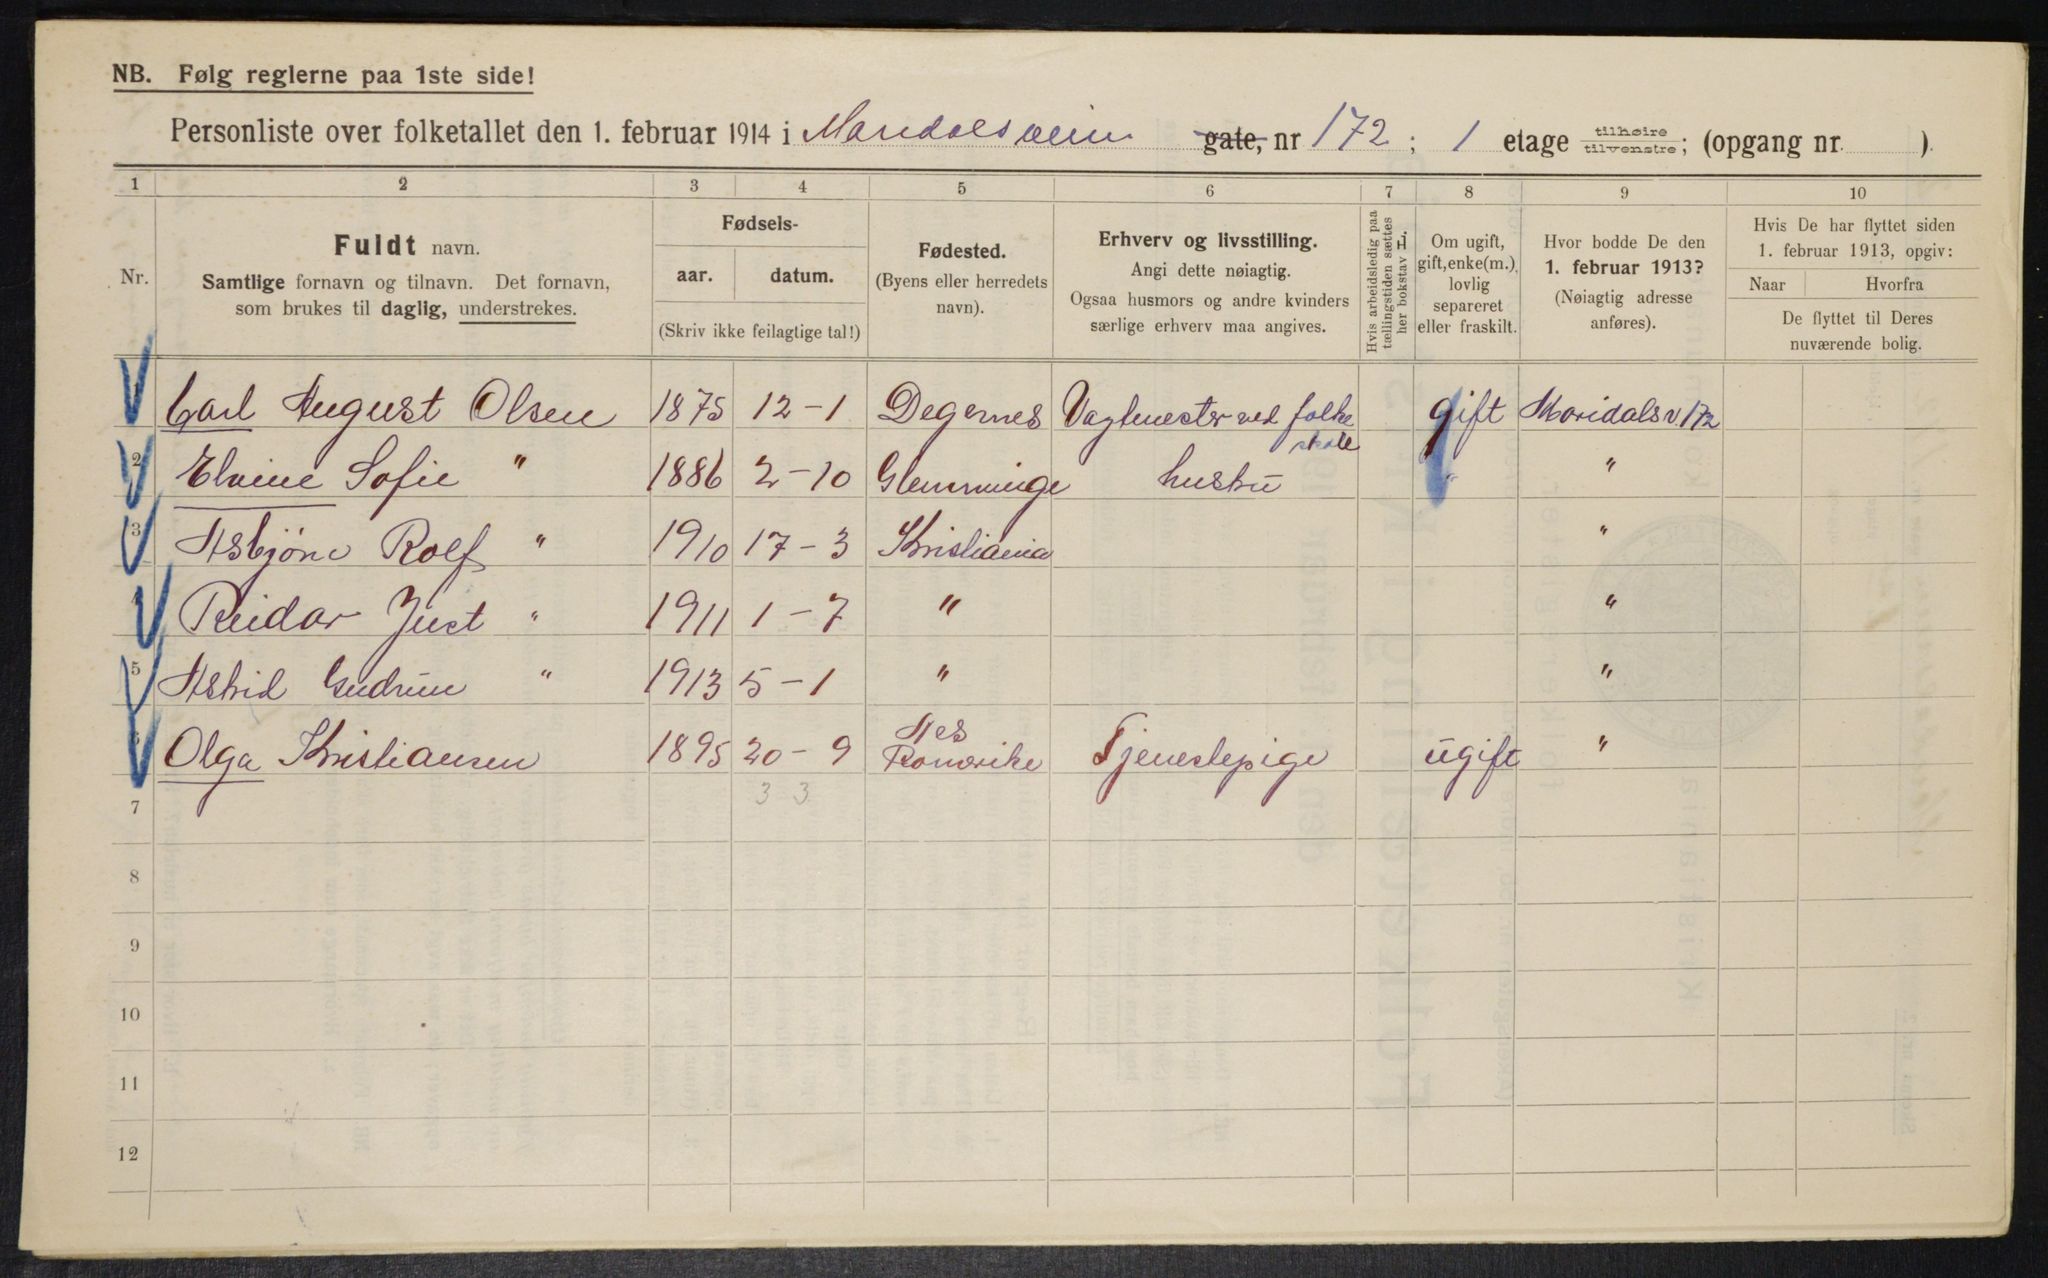 NB. Følg reglerne paa 1ste side!
Personliste over folketallet den 1. februar 1914 i Maridalsveien gate, nr 172 ; 1 etage tilhøire tilvenstre; (opgang nr. )
1 2 3 4 5 6 7 8 9 10
Nr.
Fuldt navn.
Samtlige fornavn og tilnavn. Det fornavn,
som brukes til daglig, understrekes.
Fødsels-
aar. datum.
(Skriv ikke feilagtige tal!)
Fødested.
(Byens eller herredets
navn).
Erhverv og livsstilling.
Angi dette nøiagtig.
Ogsaa husmors og andre kvinders
særlige erhverv maa angives.
Hvis arbeidsledig paa
tællingstiden sættes
her bokstav L.
Om ugift,
gift, enke(m.),
lovlig
separeret
eller fraskilt.
Hvor bodde De den
1. februar 1913?
(Nøiagtig adresse
anføres).
Hvis De har flyttet siden
1. februar 1913, opgiv:
Naar Hvorfra
De flyttet til Deres
nuværende bolig.
1 Carl August Olsen 1875 12-1 Degernes Vagtmester ved folke skole gift Maridalsv. 172
2 Elvine Sofie " 1886 2-10 Glemminge hustru " "
3 Asbjørn Rolf " 1910 17-3 Kristiania "
4 Reidar Just " 1911 1-7 " "
5 Astrid Gudrun " 1913 5-1 " "
6 Olga Kristiansen 1895 20-9 Nes Romerike Tjenestepige ugift "
3 3
7
8
9
10
11
12